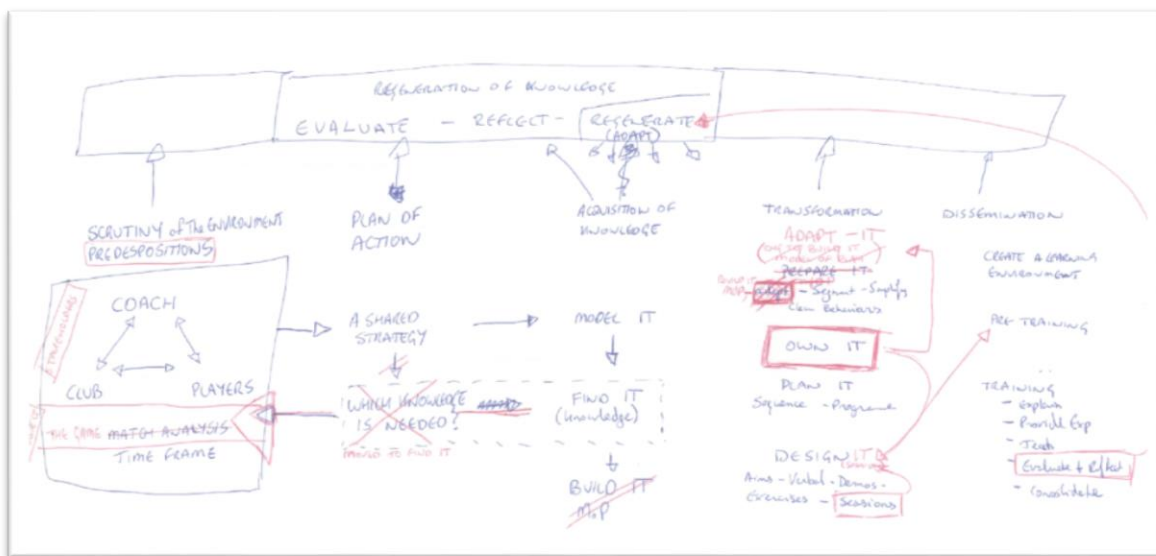 REGENERATION OF KNOWLEDGE
EVALUATE - REFLECT - REGENERATE
(ADAPT)
SCRUTINY of the ENVIRONMENT
PREDESPOSITIONS
PLAN OF
ACTION
ACQUISITION OF
KNOWLEDGE
TRANSFORMATION
DISSEMINATION
STAKEHOLDERS
COACH
CLUB
PLAYERS
THE GAME MATCH ANALYSIS
TIME FRAME
A SHARED
STRATEGY
WHICH KNOWLEDGE
IS NEEDED?
MODEL IT
FIND IT
(knowledge)
BUILD IT
MoP
ADAPT - IT
PREPARE IT
- Segment - Simplify
OWN IT
PLAN IT
Sequence - Programme
DESIGN IT
Aims - Verbal - Demos -
Exercises - Sessions
CREATE A LEARNING
ENVIRONMENT
PRE TRAINING
TRAINING
- Explain
- Provide Exp
- Evaluate & Reflect
- Consolidate